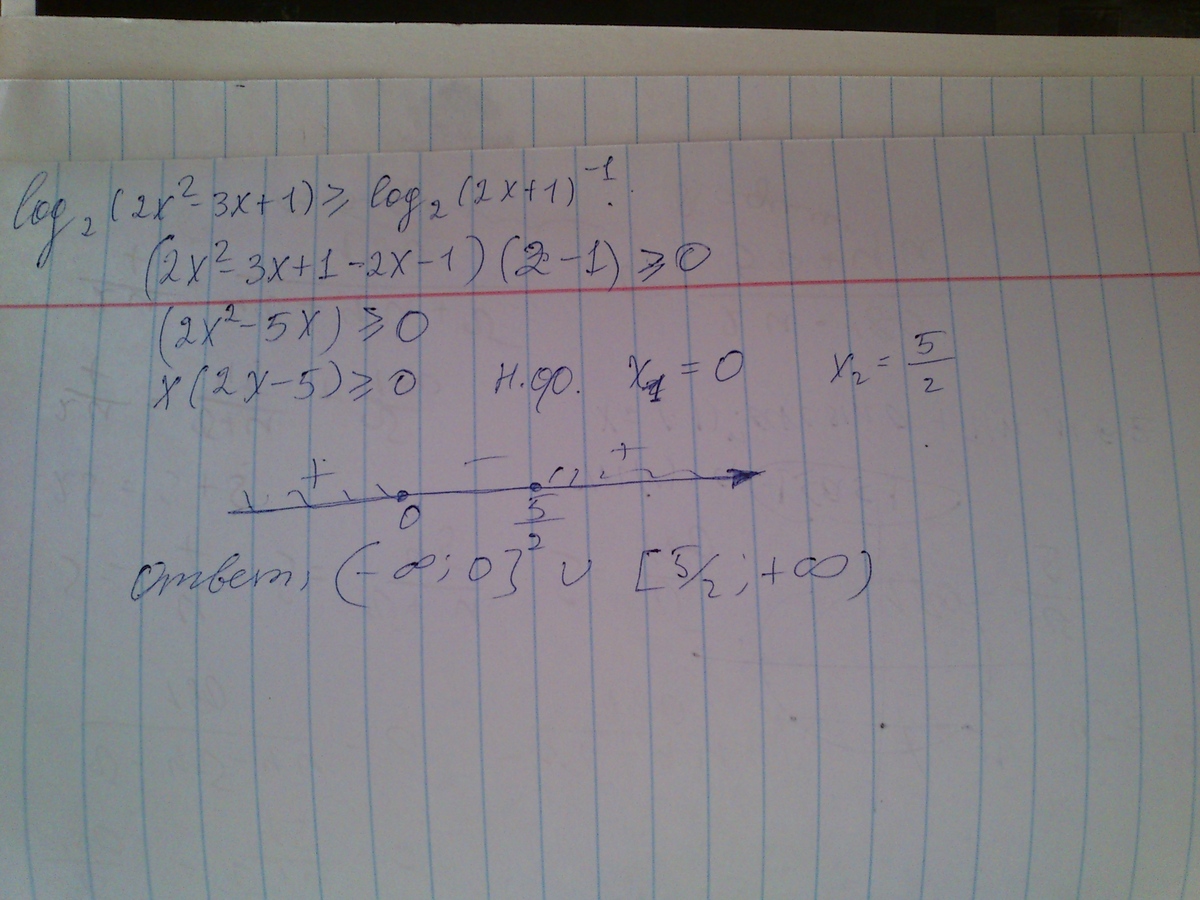 log₂(2x²-3x+1)≥log₂(2x+1)⁻¹.
(2x²-3x+1-2x-1)(2-1)≥0
(2x²-5x)≥0
x(2x-5)≥0 н.ф. x₁=0 x₂=5/2
+ - +
0 5/2
Ответ: (-∞;0]∪[5/2;+∞)